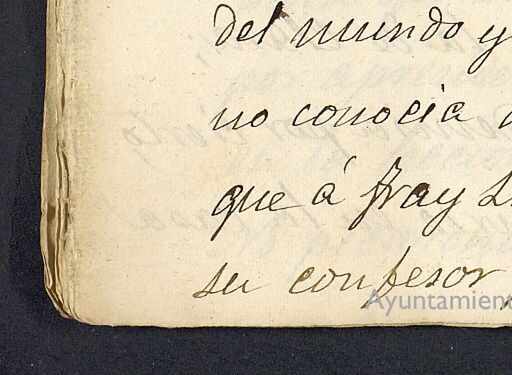 del mundo y
no conocia
que á fray
su confesor
Ayuntamient